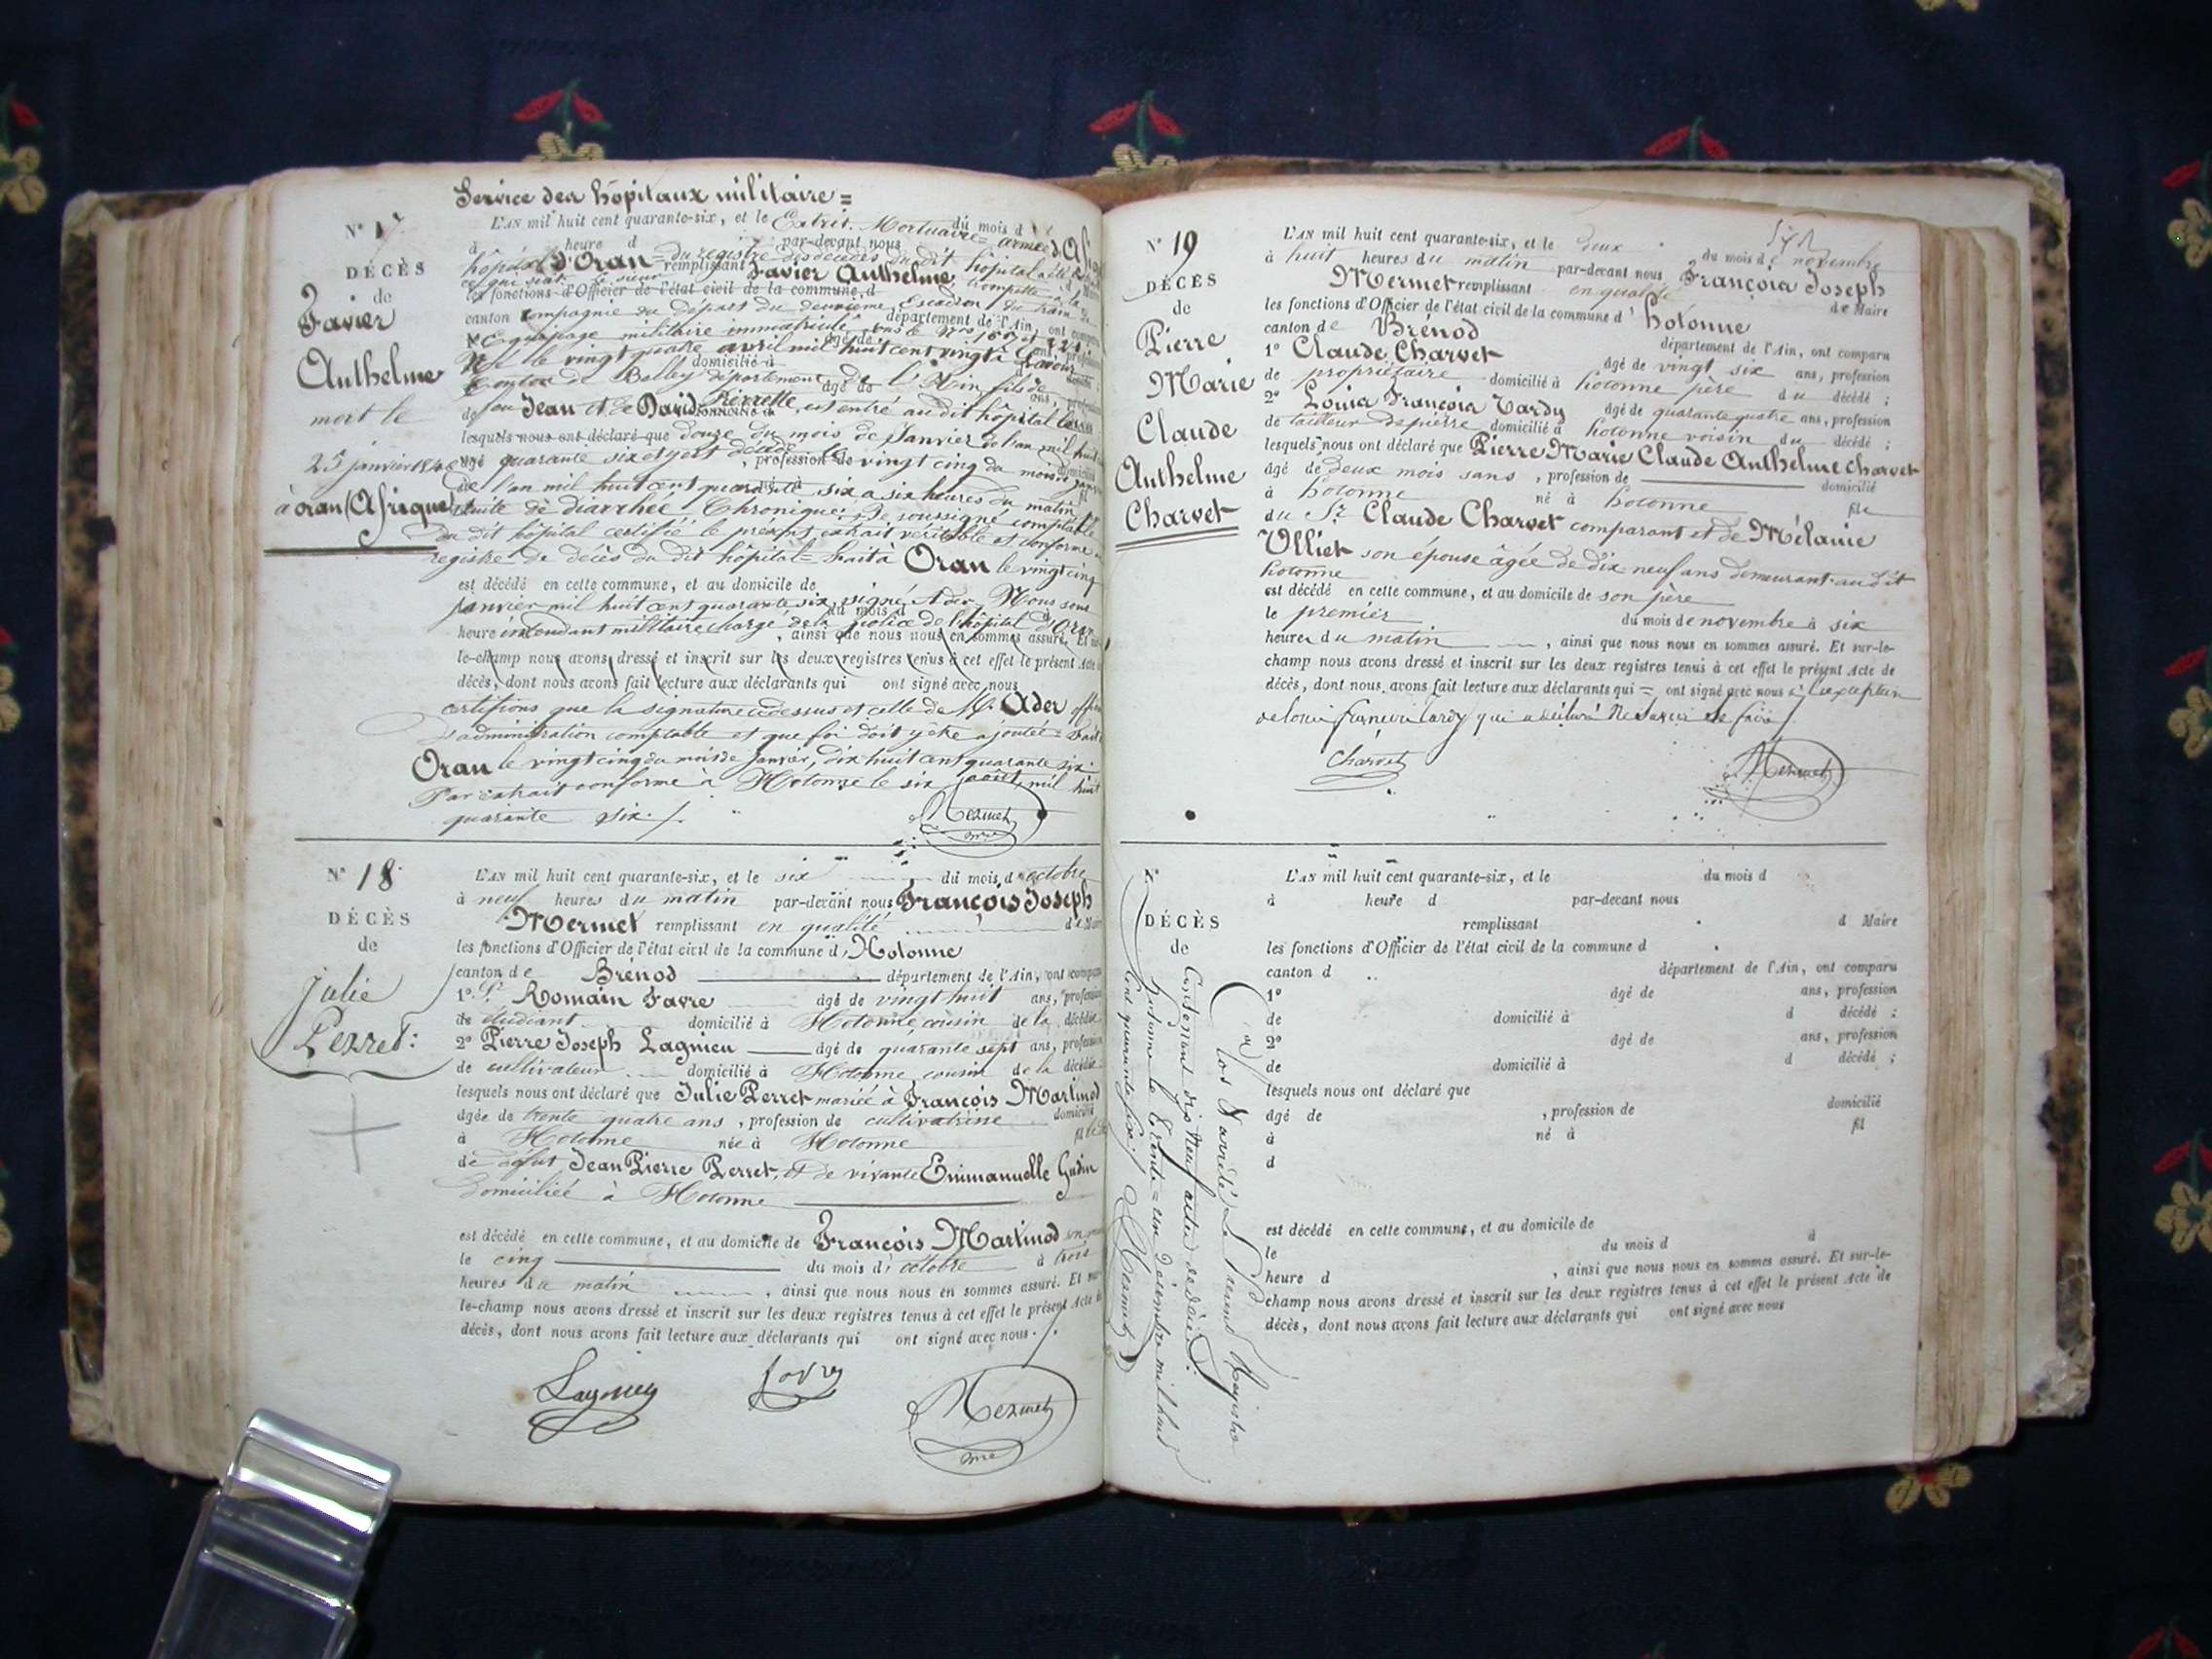 Service des hôpitaux militaire =
N° 17
DÉCÈS
de
Favier
Anthelme
mort le
25 janvier 1846
à oran (Afrique)
L'AN mil huit cent quarante-six, et le Extrit. Mortuaire = armée d'Af
du mois d
à heure d par-devant nous
hôpital d'Oran = du registre des décès du dit hôpital a été
remplissant
ce qui suit. le sieur Favier Anthelme, trompette à la
les fonctions d'Officier de l'état civil de la commune d
canton compagnie du dépôt du deuxième Escadron du train des
département de l'Ain, ont comparu
Equipage militaire immatriculé sous le Nro
Né le vingt quatre avril mil huit cent vingt à
domicilié à
Canton de Belley département de l'Ain fils de
âgé de
de feu Jean et de David Pierrette, est entré au dit hôpital
lesquels nous ont déclaré que douze du mois de Janvier de l'an mil huit
âgé quarante six et y est décédé le vingt cinq du mois de
, profession de
de l'an mil huit cent quarante six a six heures du matin
suite de diarrhée Chronique. Je soussigné comptable
du dit hôpital certifié le présent extrait véritable et conforme
registre de décès du dit hôpital = Fait à Oran le vingt cinq
est décédé en cette commune, et au domicile de
janvier mil huit cent quarante six signé Ader Nous sous
du mois d
heure intendant militaire chargé de la police de l'hôpital d'Oran
, ainsi que nous nous en sommes assuré. Et sur-
le-champ nous avons dressé et inscrit sur les deux registres tenus à cet effet le présent Acte
décès, dont nous avons fait lecture aux déclarants qui ont signé avec nous
certifions que la signature ci dessus et celle de Mr. Ader
d'administration comptable et que foi doit y être ajoutée = Fait à
Oran le vingt cinq du mois de Janvier, dix huit cent quarante six.
Par extrait conforme à Hotonne le six août mil huit
quarante six ./.
Mermet
mre
N° 18
DÉCÈS
de
Julie
Perret:
L'AN mil huit cent quarante-six, et le six du mois d'octobre
à neuf heures du matin par-devant nous François Joseph
Mermet remplissant en qualité de Maire
les fonctions d'Officier de l'état civil de la commune d' Hotonne
canton de Brénod département de l'Ain, ont comparu
1° Sr. Romain Favre âgé de vingt huit ans, profession
de étudiant domicilié à Hotonne cousin de la décédée
2° Pierre Joseph Lagnieu âgé de quarante sept ans, profession
de cultivateur domicilié à Hotonne cousin de la décédée
lesquels nous ont déclaré que Julie Perret mariée à François Martinod
âgée de trente quatre ans, profession de cultivatrice domicilié
à Hotonne née à Hotonne fille
de défut Jean Pierre Perret, et de vivante Emmanuelle Gudin
domiciliée à Hotonne
est décédé en cette commune, et au domicile de François Martinod
le cinq du mois d'octobre à trois
heures du matin, ainsi que nous nous en sommes assuré. Et sur-
le-champ nous avons dressé et inscrit sur les deux registres tenus à cet effet le présent Acte de
décès, dont nous avons fait lecture aux déclarants qui ont signé avec nous ./.
Lagnieu
Favre
Mermet
mre
N° 19
DÉCÈS
de
Pierre
Marie
Claude
Anthelme
Charvet
L'AN mil huit cent quarante-six, et le deux du mois de novembre
à huit heures du matin par-devant nous François Joseph
Mermet remplissant en qualité de Maire
les fonctions d'Officier de l'état civil de la commune d' hotonne
canton de Brénod département de l'Ain, ont comparu
1° Claude Charvet âgé de vingt six ans, profession
de propriétaire domicilié à hotonne père du décédé ;
2° Louis François Tardy âgé de quarante quatre ans, profession
de tailleur de pierre domicilié à hotonne voisin du décédé ;
lesquels nous ont déclaré que Pierre Marie Claude Anthelme Charvet
âgé de deux mois sans, profession de domicilié
à hotonne né à hotonne fils
du Sr. Claude Charvet comparant et de Mélanie
Ulliet son épouse âgée de dix neuf ans demeurant au dit
hotonne
est décédé en cette commune, et au domicile de son père
le premier du mois de novembre à six
heures du matin, ainsi que nous nous en sommes assuré. Et sur-le-
champ nous avons dressé et inscrit sur les deux registres tenus à cet effet le présent Acte de
décès, dont nous avons fait lecture aux déclarants qui = ont signé avec nous à l'exception
de louis françois tardy qui a déclaré ne savoir le faire ./.
Charvet
Mermet
N°
DÉCÈS
de
L'AN mil huit cent quarante-six, et le du mois d
à heure d par-devant nous
remplissant d Maire
les fonctions d'Officier de l'état civil de la commune d
canton d département de l'Ain, ont comparu
1° âgé de ans, profession
de domicilié à d décédé ;
2° âgé de ans, profession
de domicilié à d décédé ;
lesquels nous ont déclaré que
âgé de , profession de domicilié
à né à fil
d
est décédé en cette commune, et au domicile de
le du mois d à
heure d , ainsi que nous nous en sommes assuré. Et sur-le-
champ nous avons dressé et inscrit sur les deux registres tenus à cet effet le présent Acte de
décès, dont nous avons fait lecture aux déclarants qui ont signé avec nous
Clos & arrêté Le Présent Registre
Contenant dix Neuf actes de décès.
hotonne le trente = un décembre mil huit
Cent quarante six ./. Mermet